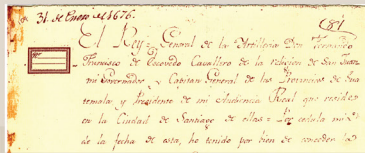 31. de Enero de 1676.
(81
El Rey = General de la Artilleria Don Francisco
Francisco de Escovedo Cavallero de la religion de San Juan
mi Governador y Capitan General de las Provincias de Gua
temala y Presidente de mi Audiencia Real que reside
en la Ciudad de Santiago de ellas = Por cedula mia
de la fecha de esta, he tenido por bien de conceder la